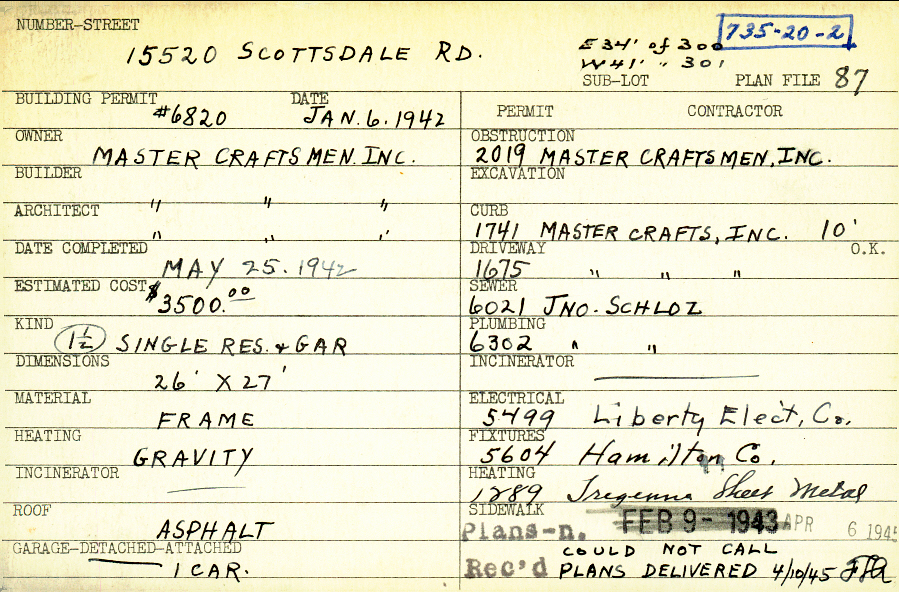 NUMBER-STREET
15520 SCOTTSDALE RD.
E 34' of 300
W 41' " 301
735-20-2
SUB-LOT PLAN FILE 87
BUILDING PERMIT DATE
#6820 JAN. 6. 1942
OWNER
MASTER CRAFTSMEN. INC.
BUILDER
" " "
ARCHITECT
" " "
DATE COMPLETED
MAY 25. 1942
ESTIMATED COST
$3500.00
KIND
1 1/2 SINGLE RES. & GAR
DIMENSIONS
26' X 27'
MATERIAL
FRAME
HEATING
GRAVITY
INCINERATOR
ROOF
ASPHALT
GARAGE-DETACHED-ATTACHED
1 CAR.
PERMIT CONTRACTOR
OBSTRUCTION
2019 MASTER CRAFTSMEN, INC.
EXCAVATION
CURB
1741 MASTER CRAFTS, INC. 10'
DRIVEWAY O.K.
1675 " " "
SEWER
6021 JNO. SCHLOZ
PLUMBING
6302 " "
INCINERATOR
ELECTRICAL
5499 Liberty Elect, Co.
FIXTURES
5604 Hamilton Co.
HEATING
1289 Tregenna Sheet Metal
SIDEWALK
Plans-n. FEB 9 - 1943 APR 6 1945
COULD NOT CALL
Rec'd PLANS DELIVERED 4/10/45